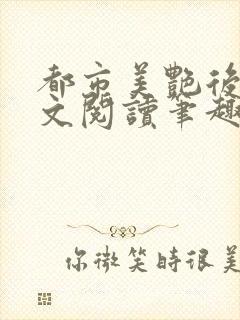 都市美艷後
文閱讀筆趣
你微笑時很美